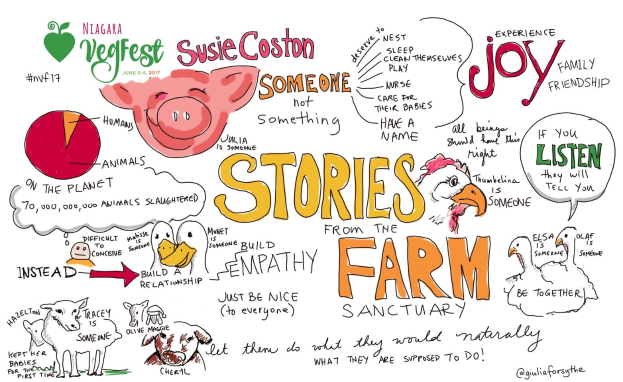 NIAGARA
VegFest
JUNE 3-4, 2017
#nvf17
Susie Coston
SOMEONE
not
Something
deserve to
NEST
SLEEP
CLEAN THEMSELVES
PLAY
NURSE
CARE FOR
THEIR BABIES
HAVE A
NAME
EXPERIENCE
JOY
FAMILY
FRIENDSHIP
HUMANS
ANIMALS
ON THE PLANET
70,000,000,000 ANIMALS SLAUGHTERED
JULIA
IS SOMEONE
all beings
should have this
right
IF YOU
LISTEN
they will
TELL YOU
STORIES
FROM THE
FARM
SANCTUARY
Thumbelina
IS
SOMEONE
DIFFICULT
TO
CONCEIVE
Matisse
IS
SOMEONE
MONET
IS
SOMEONE
INSTEAD
BUILD A
RELATIONSHIP
BUILD
EMPATHY
JUST BE NICE
(to everyone)
ELSA
IS
SOMEONE
OLAF
IS
SOMEONE
BE TOGETHER
HAZELTON
TRACEY
IS
SOMEONE
KEPT HER
BABIES
FOR THE
FIRST TIME
OLIVE MAGGIE
CHERYL
let them do what they would naturally
WHAT THEY ARE SUPPOSED TO DO!
@giuliaforsythe